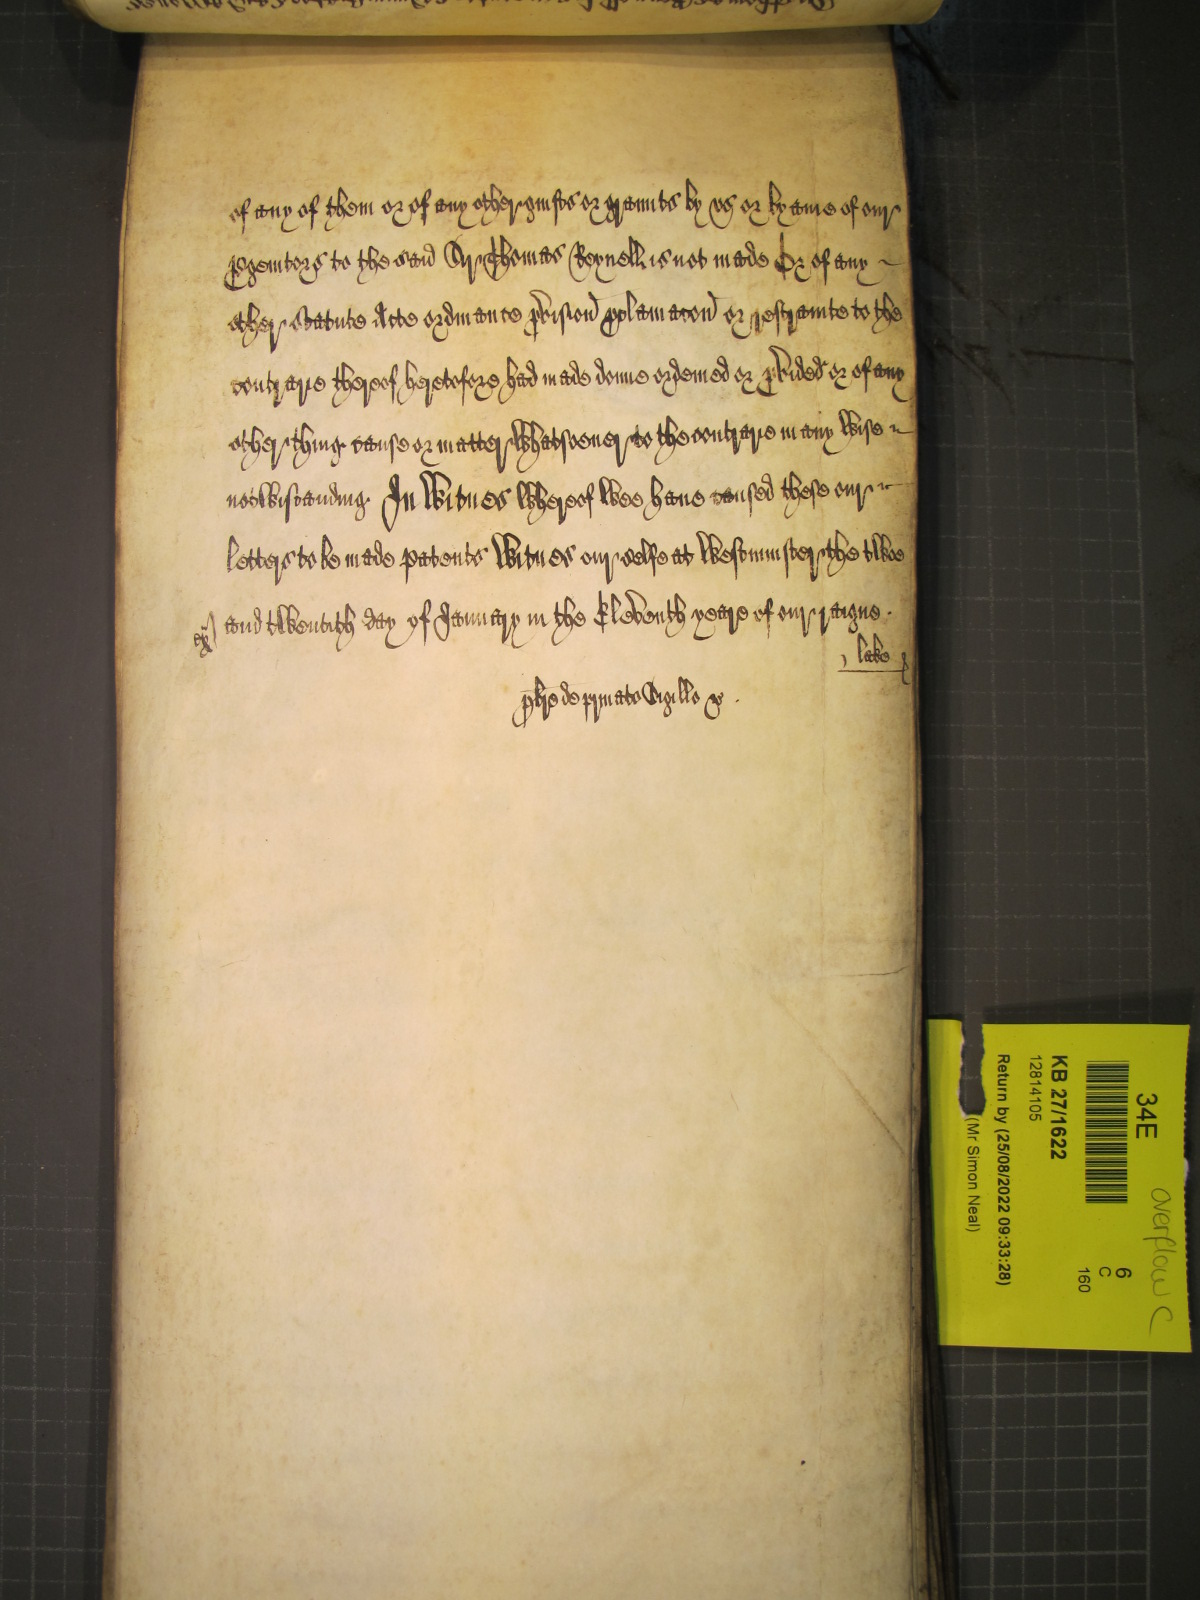 of any of them or of any other guifts or graunts by vs or by anie of our
pgenitors to the said Sir Thomas Reynell is not made Or of any
other Statute Acte ordinance pvision pclamacon or restrainte to the
contrarie thereof heretofore had made donne ordeined or pvided or of any
other thing cause or matter Whatsoeuer to the contrarie in any Wise
notWistanding In Witnes Whereof Wee haue caused these our
letters to be made patents Witnes our selfe at Westminster the tWoe
and tWentith day of January in the Eleventh yeare of our raigne.
ex)
lake
p bre de privato Sigillo &c.
34E
overflow C
KB 27/1622
12814105
6
C
160
Return by (25/08/2022 09:33:28)
(Mr Simon Neal)